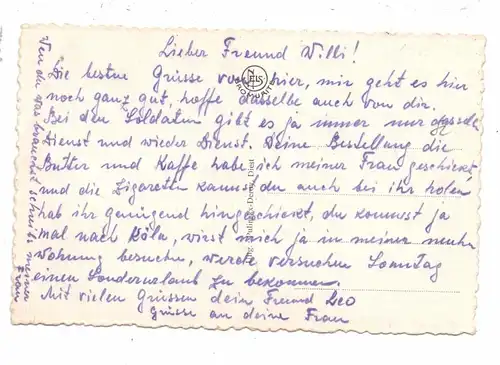 Lieber Freund Willi!
Die besten Grüsse von hier, mir geht es hier
noch ganz gut, hoffe dasselbe auch von dir.
Bei den Soldaten gibt es ja immer nur
Dienst und wieder Dienst. Deine Bestellung die
Butter und Kaffe habe ich meiner Frau geschickt,
und die Zigaretten kannst du auch bei ihr holen
hab ihr genügend hingeschickt, du kommst ja
mal nach Köln, wirst mich ja in meiner
Wohnung besuchen, werde versuchen Sonntag
einen Sonderurlaub zu bekommen.
Mit vielen Grüssen dein Freund Leo
Grüsse an deine Frau
Wen du was brauchst schreibs meiner
Frau
NELS